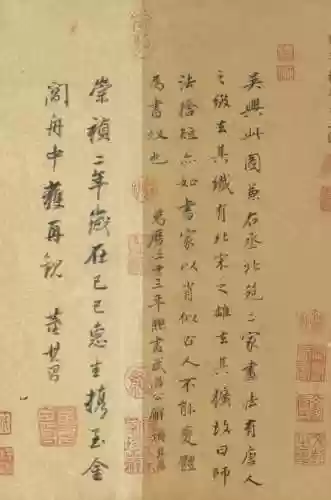 吳興此圖兼右丞北苑二家畫法有唐人
之緻去其纖有北宋之雄去其獷故曰師
法捨短亦如書家以肖似古人不能變體
為書奴也 萬曆三十三年晒畫武昌公廨題其昌
崇禎二年歲在己巳惠生攜至金
閶舟中獲再觀 董其昌